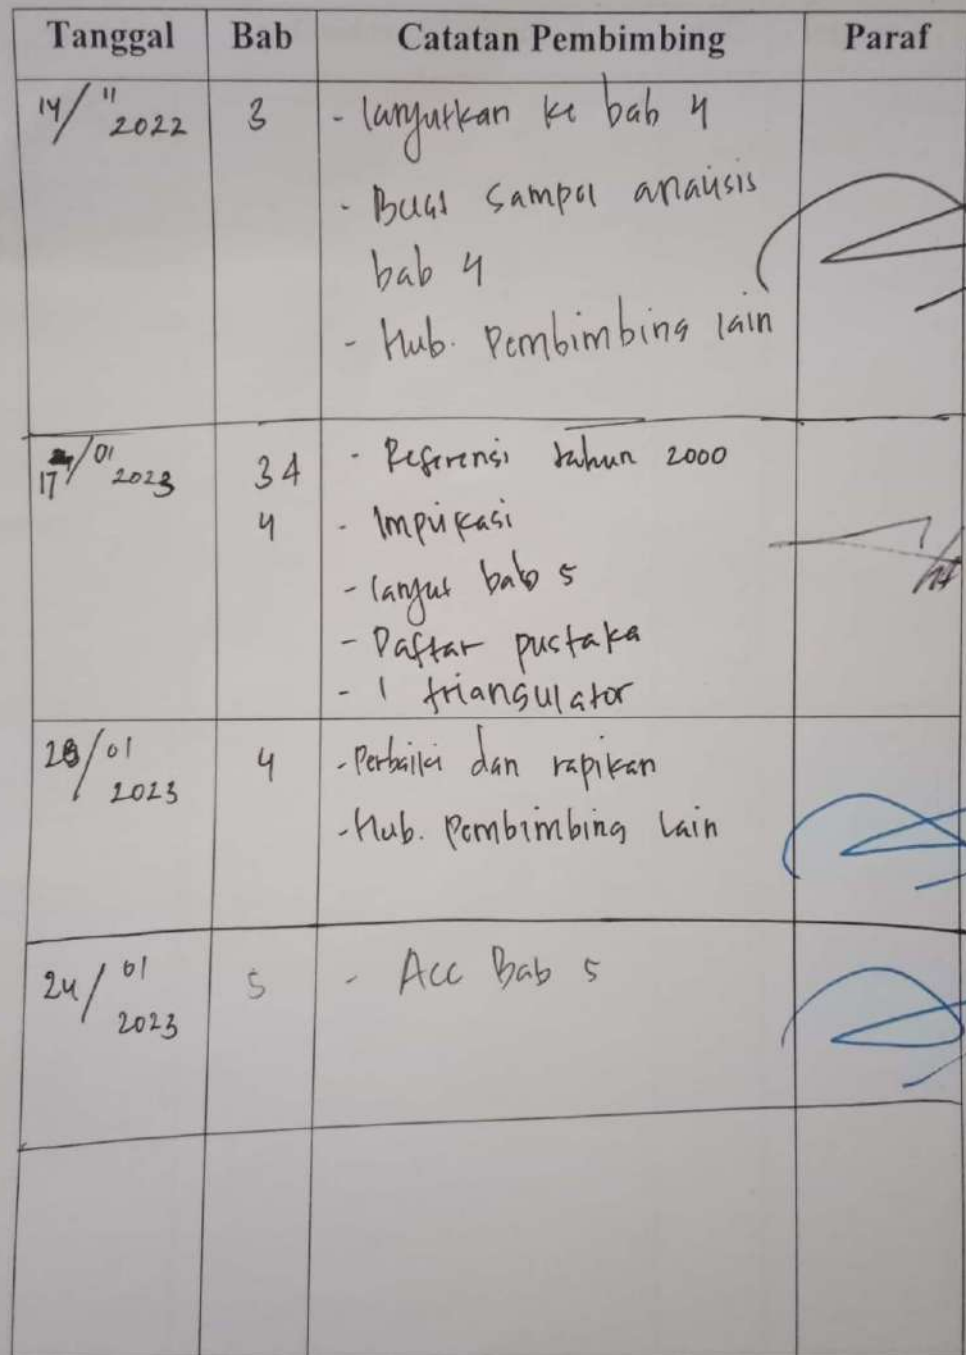 Tanggal Bab Catatan Pembimbing Paraf
14/11 2022 3 - lanjutkan ke bab 4
- Buat sampel analisis
bab 4
- Hub. Pembimbing lain
17/01 2023 34 - Referensi tahun 2000
4 - Implikasi
- lanjut bab 5
- Daftar pustaka
- 1 triangulator
/01 2023 4 - Perbaiki dan rapikan
- Hub. Pembimbing lain
24/01 2023 5 - Acc Bab 5